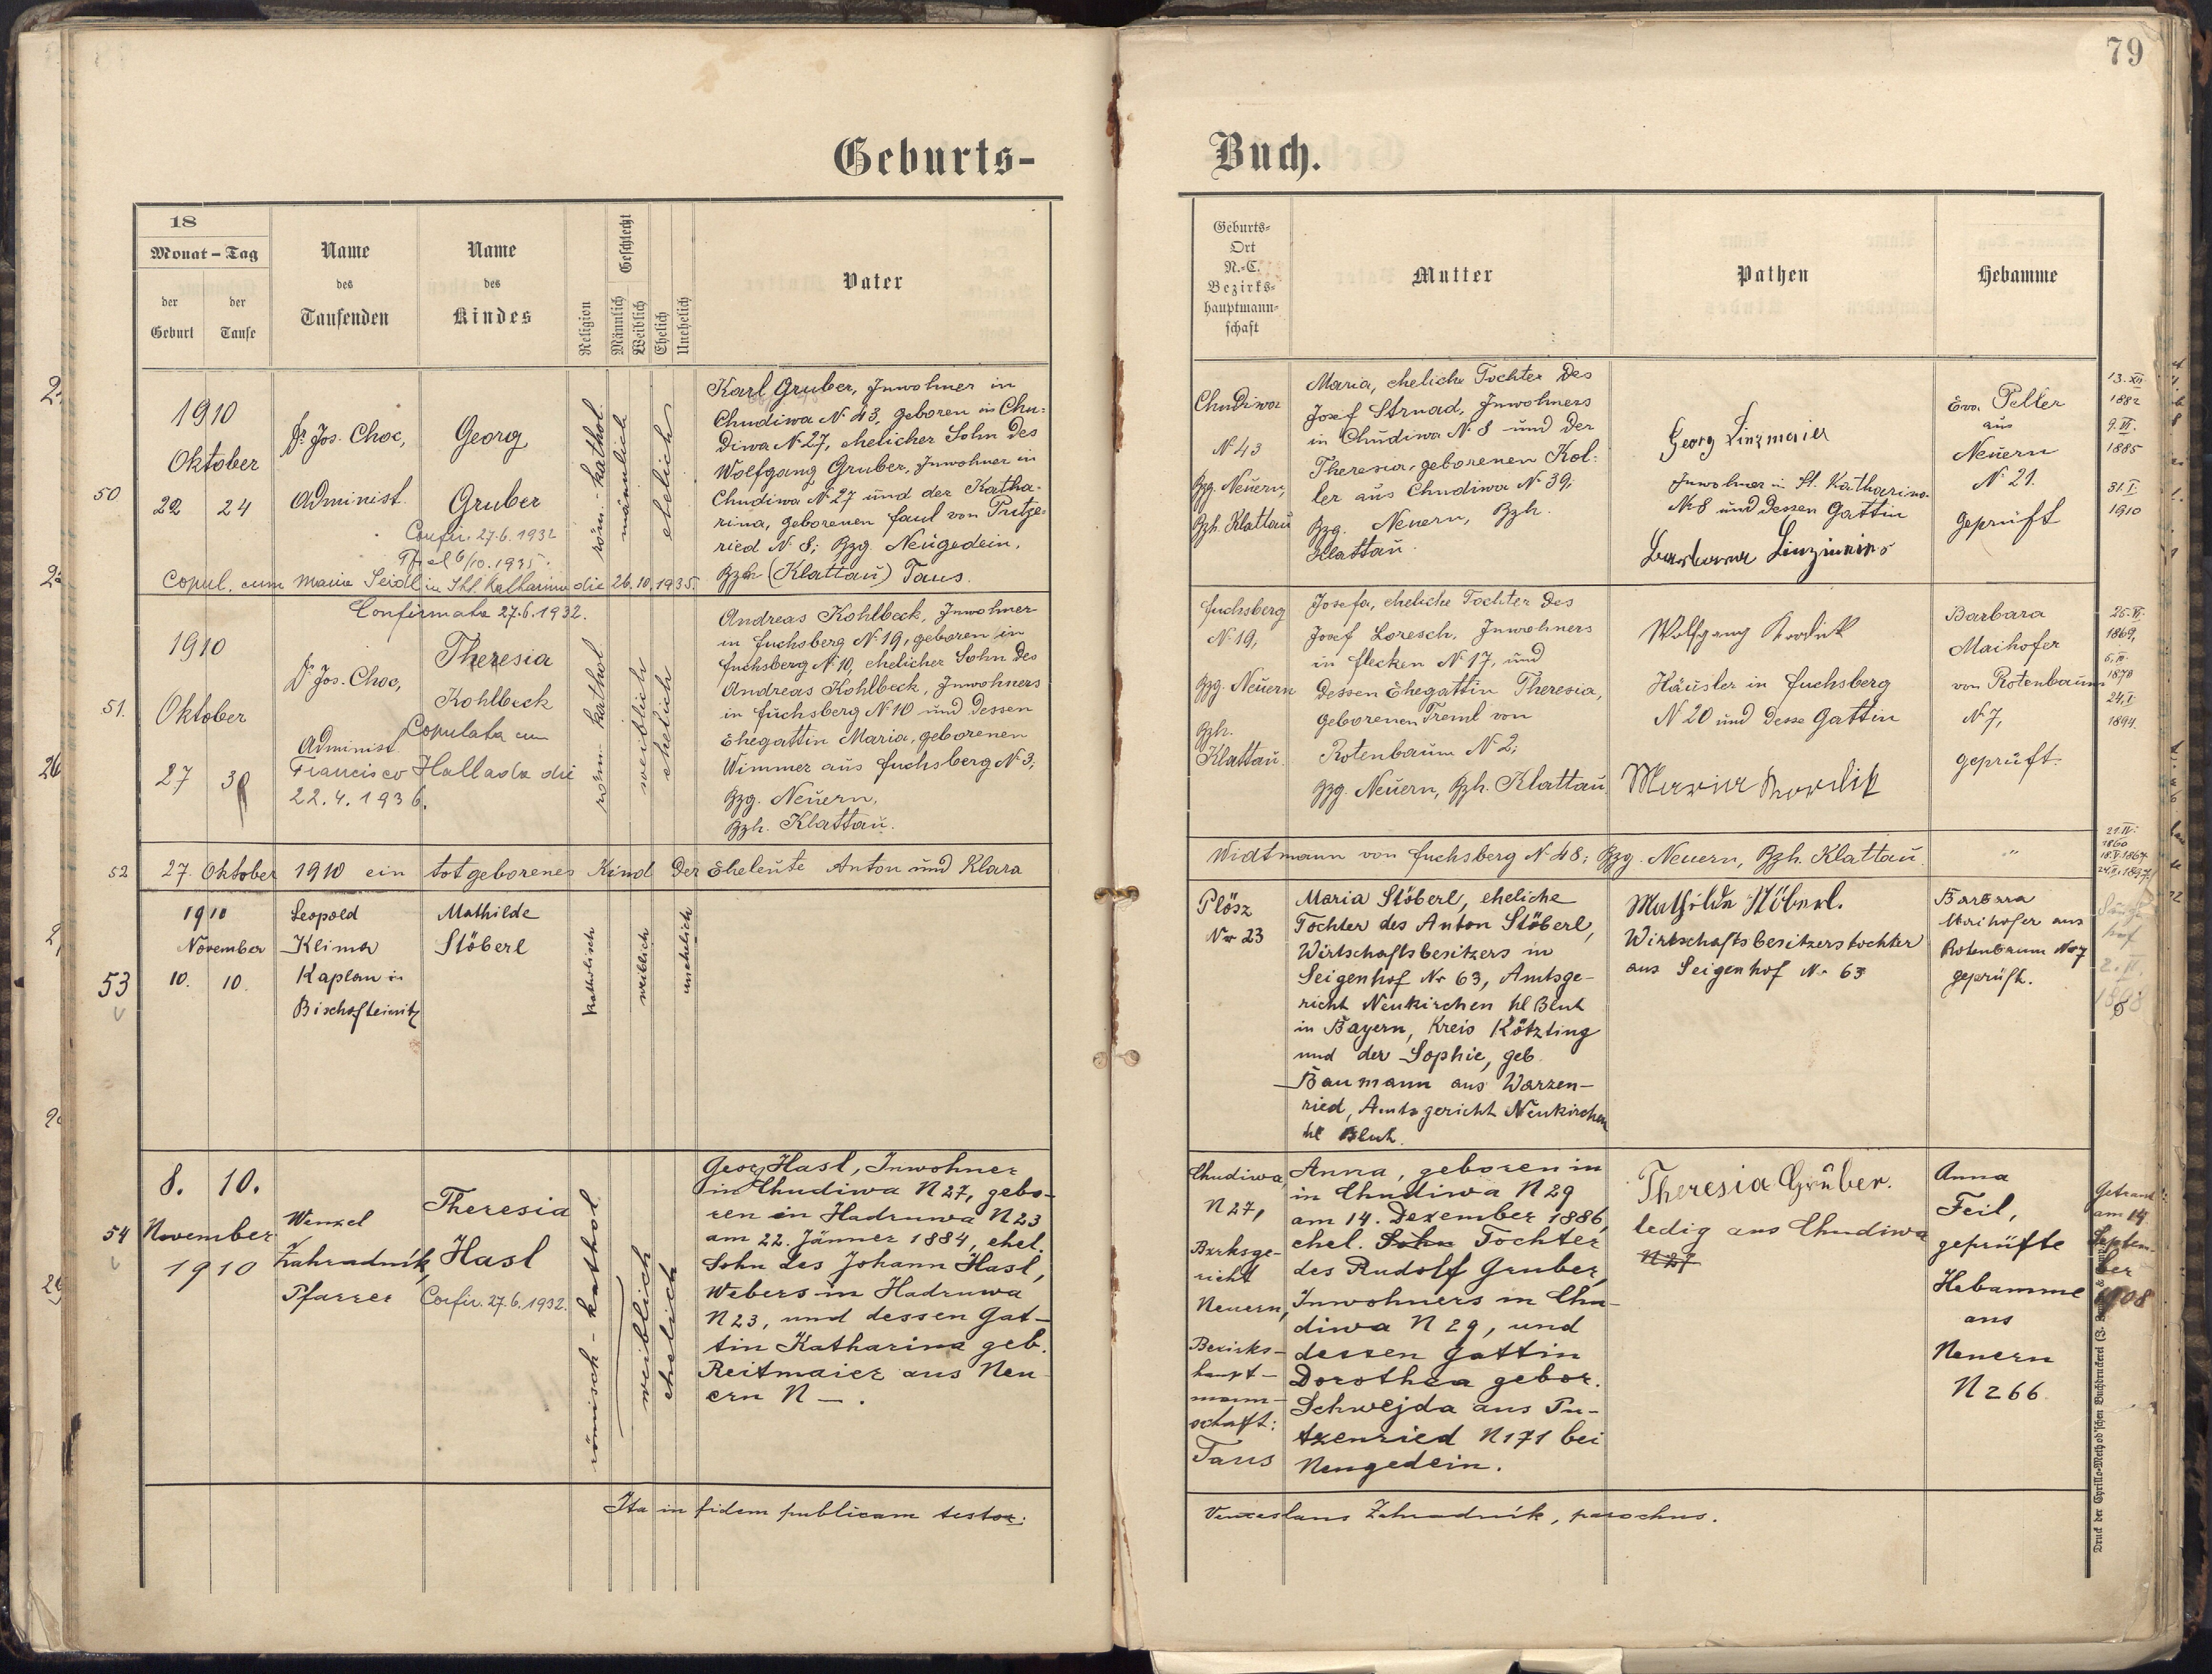 79
Geburts-
Buch.
18
Monat - Tag
der
Geburt
der
Taufe
Name
des
Taufenden
Name
des
Kindes
Religion
Geschlecht
Männlich
Weiblich
Ehelich
Unehelich
Vater
Geburts-
Ort
N.-C.
Bezirks-
hauptmann-
schaft
Mutter
Pathen
Hebamme
50
1910
Oktober
22 24
Jos. Choc,
Administ.
Georg
Gruber
Confir. 27.6.1932
6/10.1935.
Copul. cum Maria Seidl in Skt. Katharina die 26.10.1935.
röm.-kathol.
männlich
ehelich
Karl Gruber, Inwohner in
Chudiwa N. 43, geboren in Chu-
diwa N. 27, ehelicher Sohn des
Wolfgang Gruber, Inwohner in
Chudiwa N. 27 und der Katha-
rina, geborenen Faul von Putze-
ried N. 8; Bzg. Neugedein,
Bzh (Klattau) Taus.
Chudiwa
N. 43
Bzg. Neuern,
Bzh. Klattau
Maria, eheliche Tochter des
Josef Strnad, Inwohners
in Chudiwa N. 8 und der
Theresia, geborenen Kol-
ler aus Chudiwa N. 39;
Bzg. Neuern, Bzh.
Klattau.
Georg Linzmaier
Inwohner in St. Katharina
N. 8 und dessen Gattin
Barbara
Eva Pelter
aus
Neuern
N. 21.
geprüft
13. XII.
1882
9. VI.
1885
31. I.
1910
51.
1910
Oktober
27
Jos. Choc,
Administ.
Confirmata 27.6.1932.
Theresia
Kohlbeck
Copulata cum
Francisco Hallada die
22.4.1936.
röm. kathol
weiblich
ehelich
Andreas Kohlbeck, Inwohner
in Fuchsberg N. 19, geboren in
Fuchsberg N. 10, ehelicher Sohn des
Andreas Kohlbeck, Inwohners
in Fuchsberg N. 10 und dessen
Ehegattin Maria, geborenen
Wimmer aus Fuchsberg N. 3;
Bzg. Neuern,
Bzh. Klattau.
Fuchsberg
N. 19,
Bzg. Neuern
Bzh.
Klattau.
Josefa, eheliche Tochter des
Josef Loresch, Inwohners
in Flecken N. 17, und
dessen Ehegattin Theresia,
geborenen Treml von
Rotenbaum N. 2;
Bzg. Neuern, Bzh. Klattau.
Wolfgang
Häusler in Fuchsberg
N. 20 und desse Gattin
Maria
Barbara
Maihofer
von Rotenbaum
N. 7,
geprüft.
1869,
1870
24. I.
1894.
52
27. Oktober 1910 ein totgeborenes Kind der Eheleute Anton und Klara
Widtmann von Fuchsberg N. 48; Bzg. Neuern, Bzh. Klattau.
"
21. IV.
1860
18. V. 1867
53
1910
November
10. 10.
Leopold
Klima
Kaplan in
Bischofteinitz
Mathilde
Stöberl
katholisch
weiblich
unehelich
Plösz
Nr 23
Maria Stöberl, eheliche
Tochter des Anton Stöberl,
Wirtschaftsbesitzers in
Seigenhof Nr 63, Amtsge-
richt Neukirchen hl Blut
in Bayern, Kreis Kötzting
und der Sophie, geb.
Baumann aus Warzen-
ried, Amtsgericht Neukirchen
hl Blut.
Mathilde Stöberl.
Wirtschaftsbesitzerstochter
aus Seigenhof Nr 63
Barbara
Maihofer aus
Rotenbaum Nr 7
geprüft.
54
8. 10.
November
1910
Wenzel
Zahradník,
Pfarrer
Theresia
Hasl
Confir. 27.6.1932.
römisch-kathol
weiblich
ehelich
Georg Hasl, Inwohner
in Chudiwa N 27, gebo-
ren in Hadruwa N 23
am 22. Jänner 1884, ehel.
Sohn des Johann Hasl,
Webers in Hadruwa
N 23, und dessen Gat-
tin Katharina geb.
Reitmaier aus Neu
ern N —.
Chudiwa,
N 27,
Bezirksge-
richt
Neuern,
Bezirks-
haupt-
mann-
schaft:
Taus
Anna, geboren in
in Chudiwa N 29
am 14. Dezember 1886,
ehel. Sohn Tochter
des Rudolf Gruber,
Inwohners in Chu-
diwa N 29, und
dessen Gattin
Dorothea gebor.
Schwejda aus Pu-
tzenried N 171 bei
Neugedein.
Theresia Gruber.
ledig aus Chudiwa
N 27
Anna
Feil,
geprüfte
Hebamme
aus
Neuern
N 266.
Getraut
am 14.
Septem-
ber
1908
Ita in fidem publicam testor:
Venceslaus Zahradník, parochus.